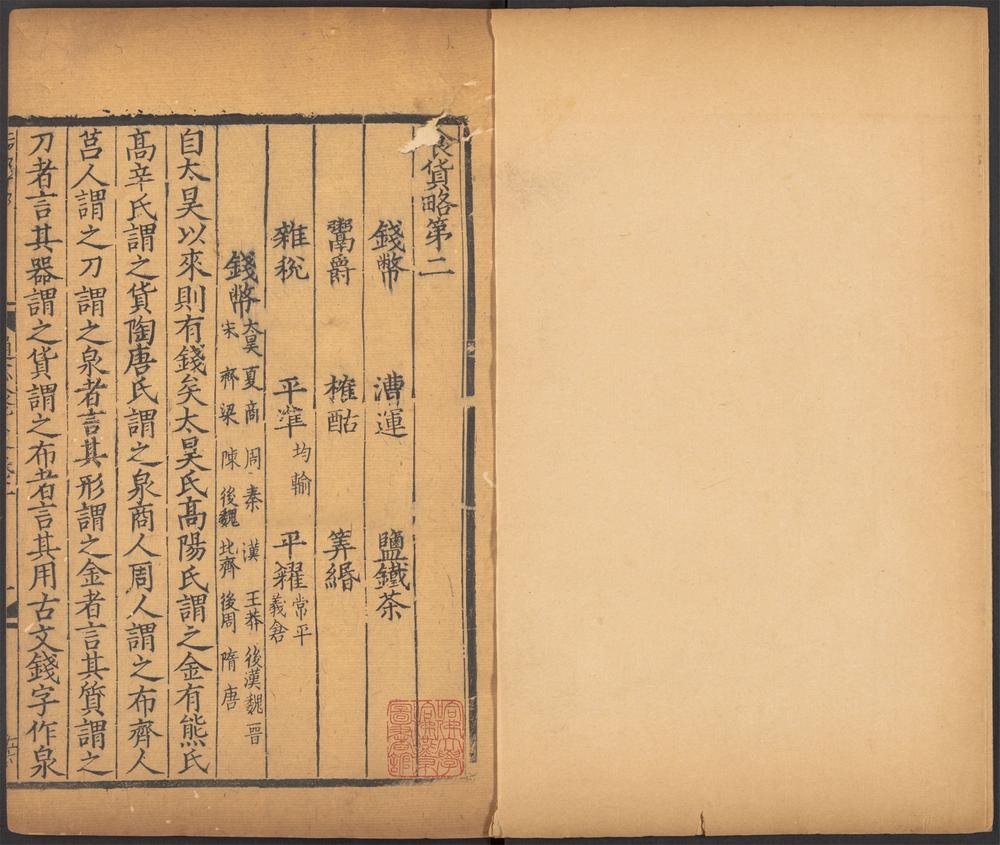 食貨略第二
錢幣 漕運 鹽鐵茶
鬻爵 榷酤 筭緡
雜稅 平準 均輸 平糴 常平 義倉
錢幣 太昊 夏 商 周 秦 漢 王莽 後漢 魏 晉
宋 齊 梁 陳 後魏 北齊 後周 隋 唐
自太昊以來則有錢矣太昊氏高陽氏謂之金有熊氏
高辛氏謂之貨陶唐氏謂之泉商人周人謂之布齊人
莒人謂之刀謂之泉者言其形謂之金者言其質謂之
刀者言其器謂之貨謂之布者言其用古文錢字作泉